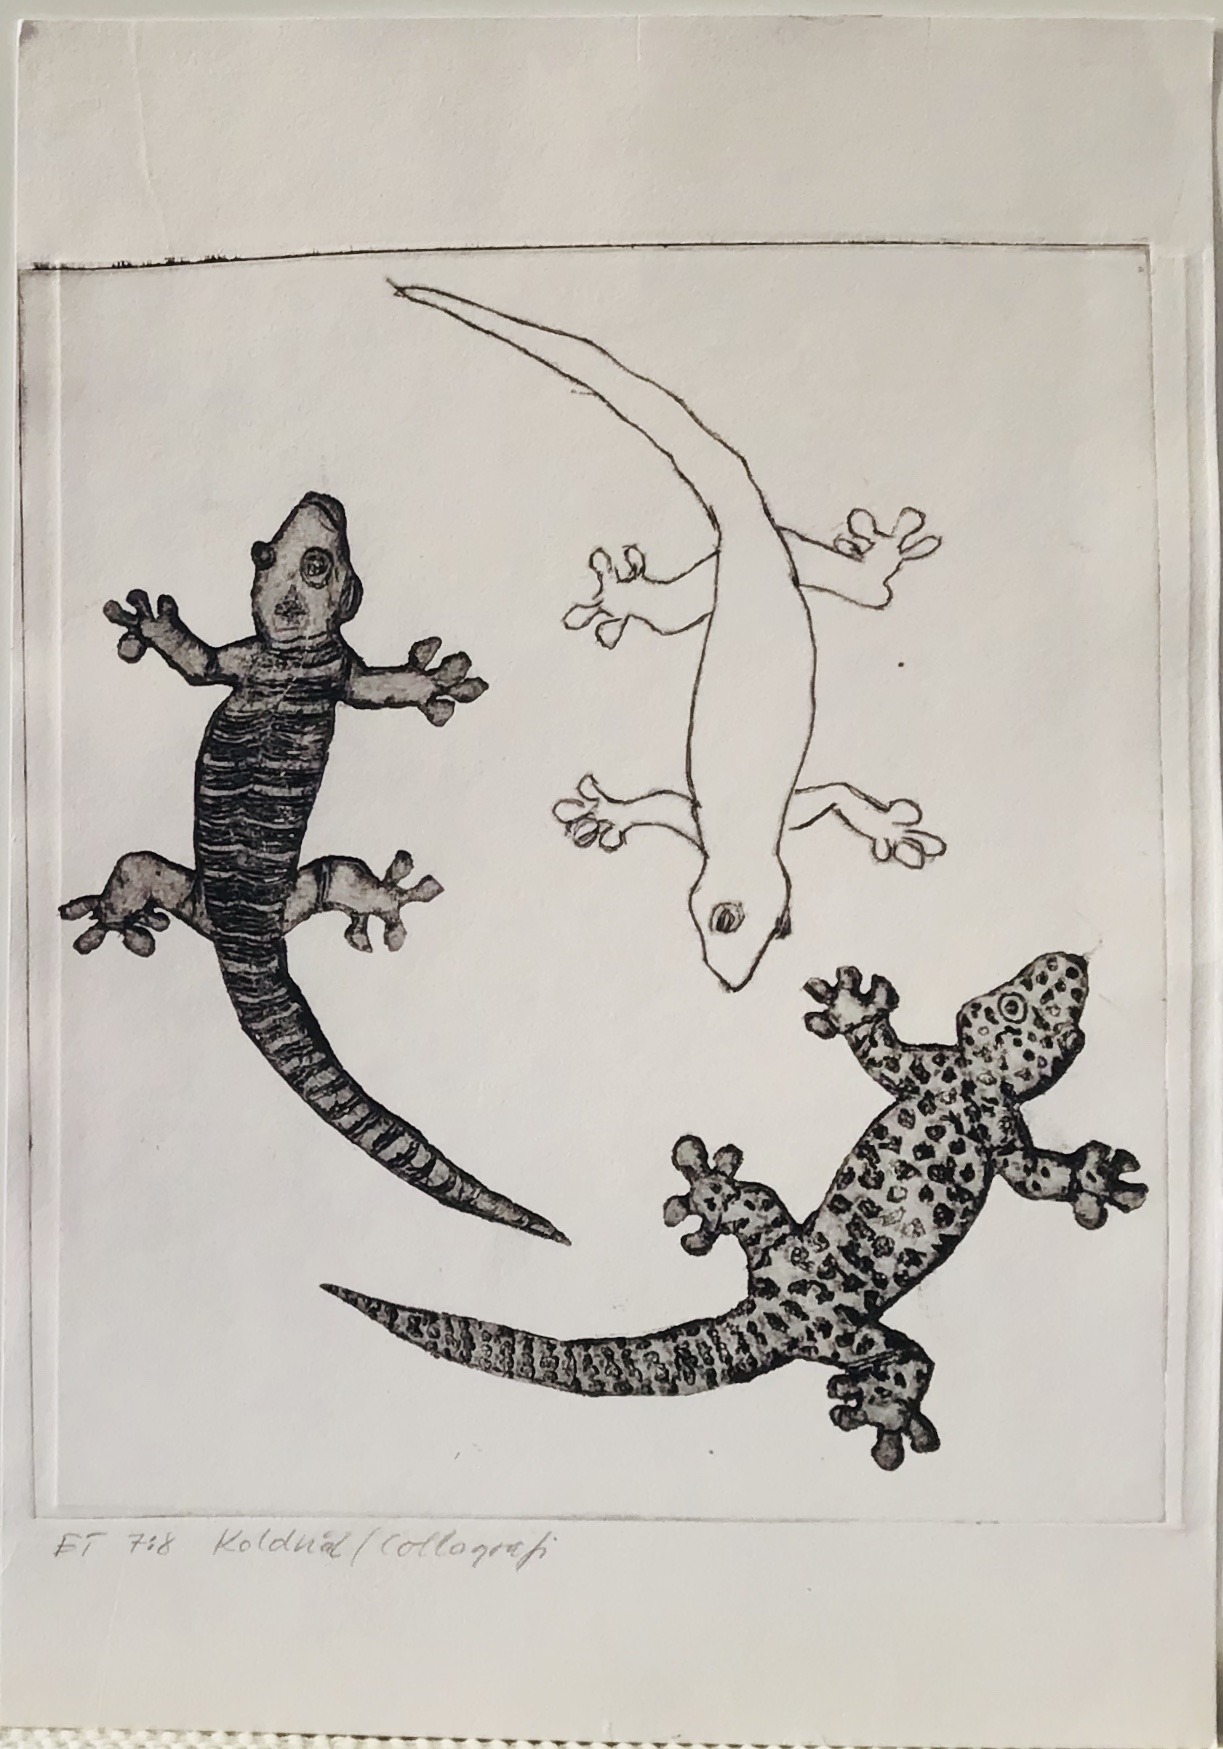 ET 7:8 Koldnål/Collografi